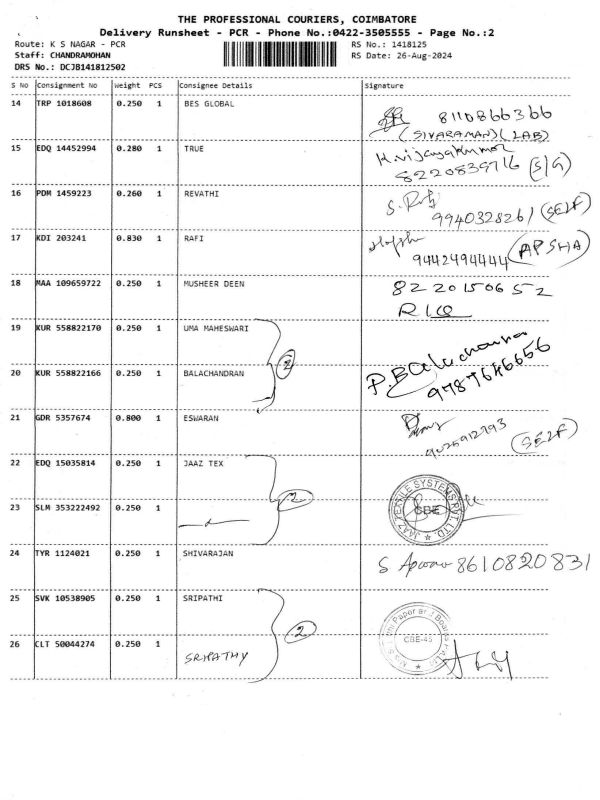 THE PROFESSIONAL COURIERS, COIMBATORE
Delivery Runsheet - PCR - Phone No.:0422-3505555 - Page No.:2
Route: K S NAGAR - PCR RS No.: 1418125
Staff: CHANDRAMOHAN RS Date: 26-Aug-2024
DRS No.: DCJB141812502
S No Consignment No Weight PCS Consignee Details Signature
14 TRP 1018608 0.250 1 BES GLOBAL 8110866366
(SIVARAMAN) (LAB)
15 EDQ 14452994 0.280 1 TRUE K.vijayakumar
8220839716 (S/G)
16 PDM 1459223 0.260 1 REVATHI
9940328261 (SELF)
17 KDI 203241 0.830 1 RAFI
9442494444 (APSHA)
18 MAA 109659722 0.250 1 MUSHEER DEEN 8220150652
19 KUR 558822170 0.250 1 UMA MAHESWARI
2
20 KUR 558822166 0.250 1 BALACHANDRAN P.Balachandran
9787646656
21 GDR 5357674 0.800 1 ESWARAN
9025912793 (SELF)
22 EDQ 15035814 0.250 1 JAAZ TEX
2
23 SLM 353222492 0.250 1 JAAZ TEXTILE SYSTEMS PVT. LTD.
CBE
24 TYR 1124021 0.250 1 SHIVARAJAN 8610820831
25 SVK 10538905 0.250 1 SRIPATHI
2
Paper and Boards
CBE-45
26 CLT 50044274 0.250 1 SRIPATHY